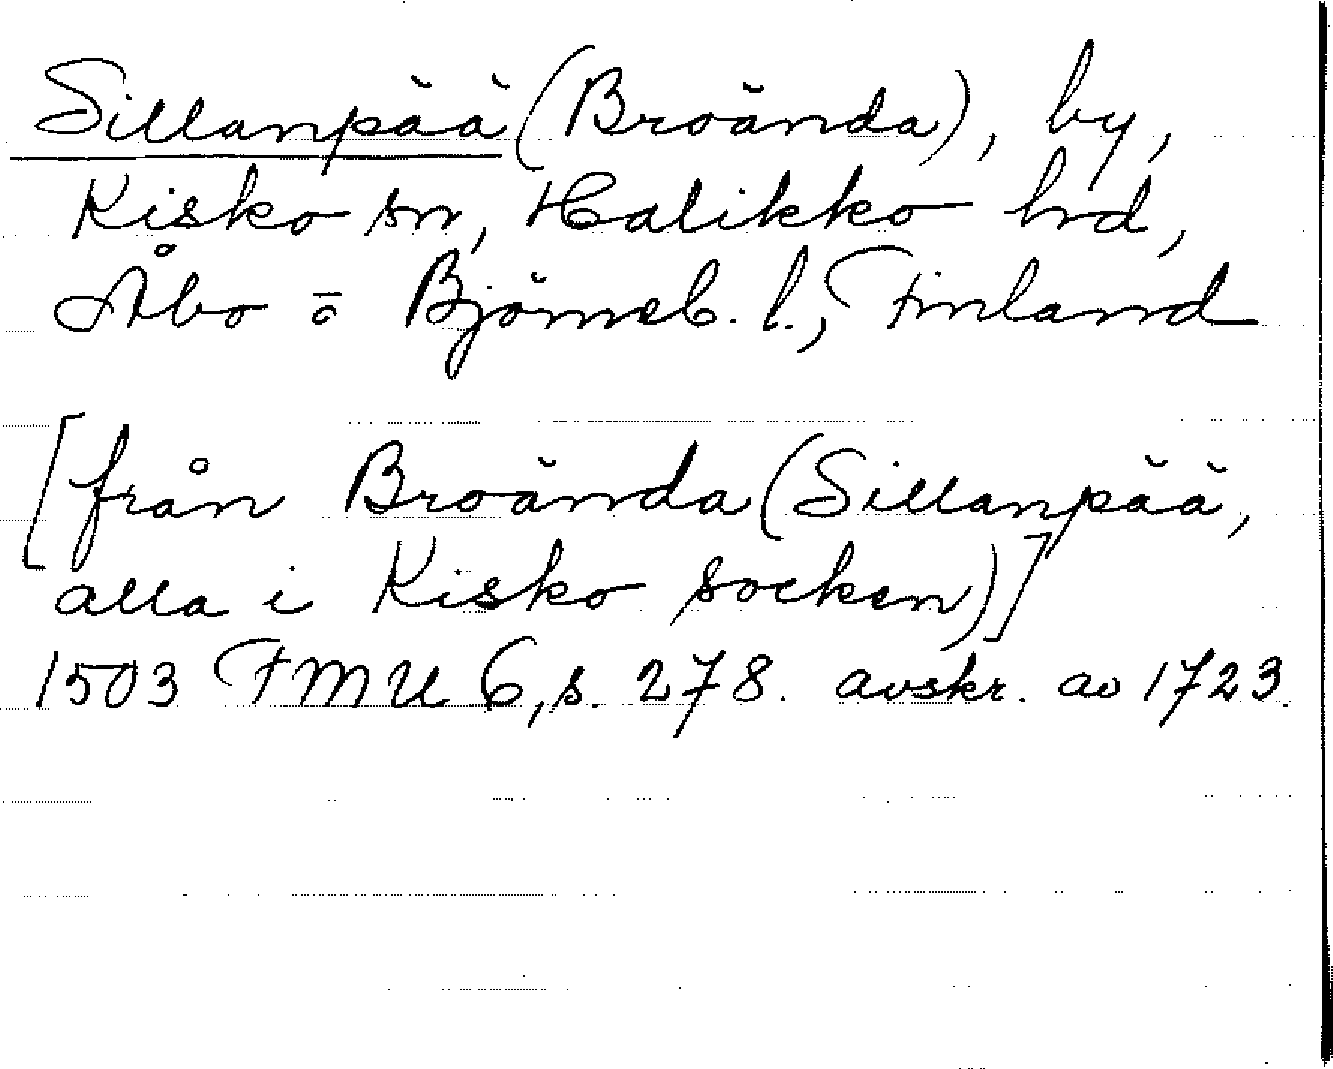 Sillanpää (Broända), by,
Kisko sn, Halikko hrd,
Åbo o Björneb. l., Finland
[från Broända (Sillanpää,
alla i Kisko socken)]
1503 FMU 6, s. 278. avskr. av 1723.